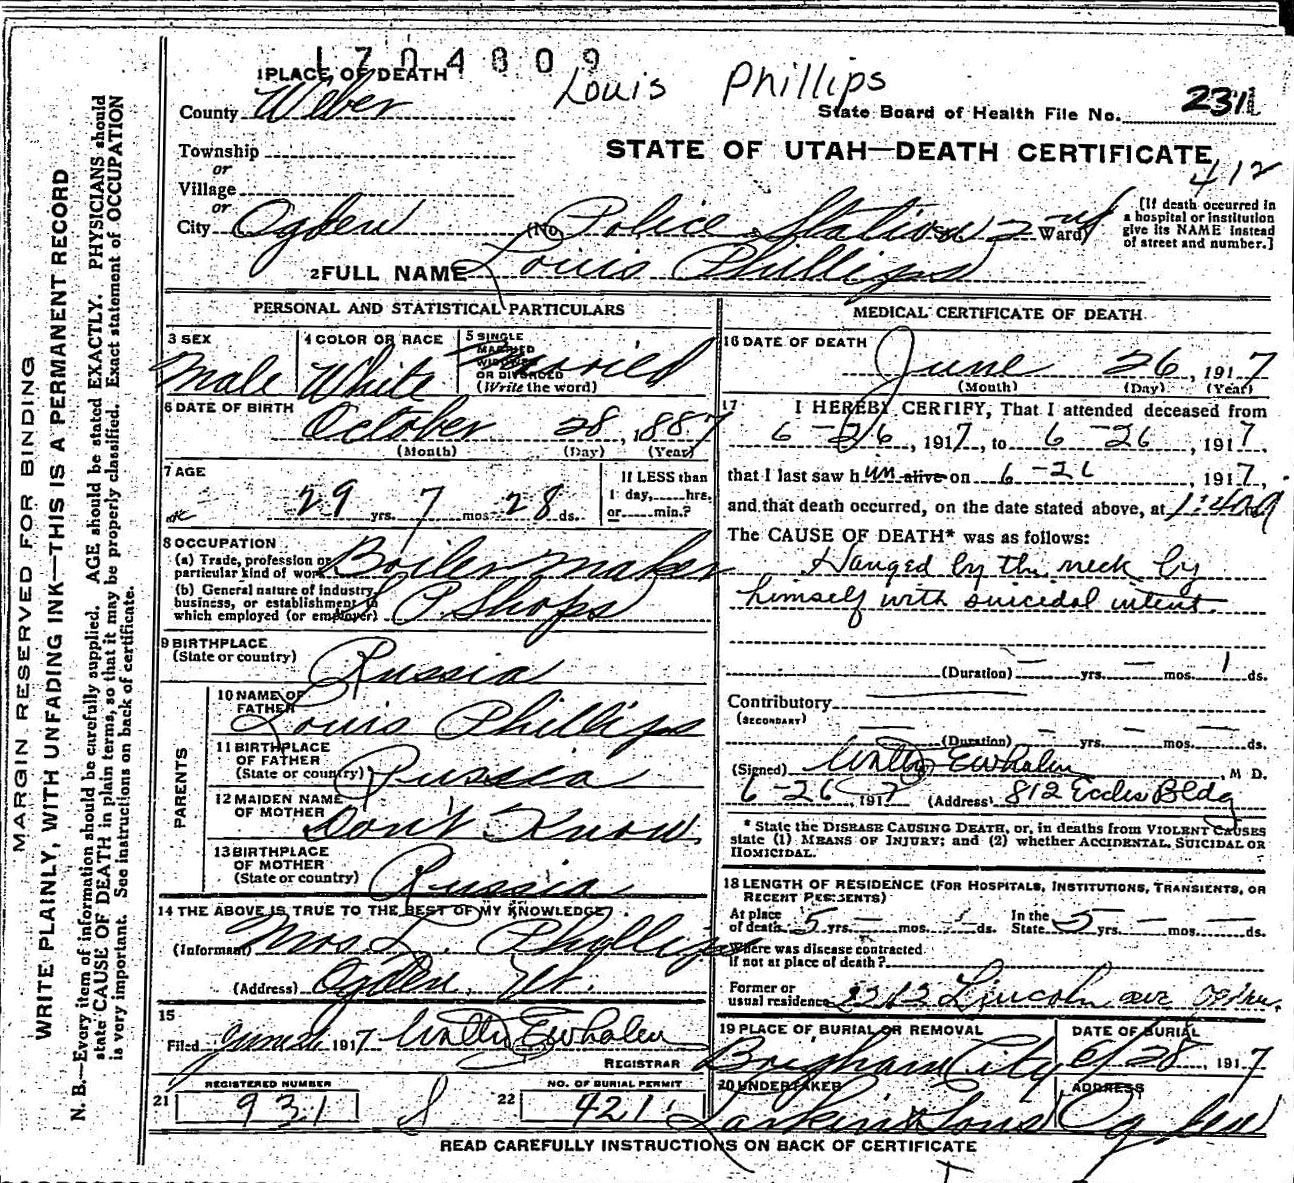 1704809
Louis Phillips
1 PLACE OF DEATH
County Weber
State Board of Health File No. 2311
STATE OF UTAH—DEATH CERTIFICATE
412
Township
or
Village
or
City Ogden (No. Police Station 2nd Ward)
[If death occurred in
a hospital or institution
give its NAME instead
of street and number.]
2 FULL NAME Louis Phillips
MARGIN RESERVED FOR BINDING
WRITE PLAINLY, WITH UNFADING INK—THIS IS A PERMANENT RECORD
N. B.—Every item of information should be carefully supplied. AGE should be stated EXACTLY. PHYSICIANS should
state CAUSE OF DEATH in plain terms, so that it may be properly classified. Exact statement of OCCUPATION
is very important. See instructions on back of certificate.
PERSONAL AND STATISTICAL PARTICULARS
3 SEX
Male
4 COLOR OR RACE
White
5 SINGLE
MARRIED
WIDOWED
OR DIVORCED
(Write the word)
Married
6 DATE OF BIRTH
October 28, 1887
(Month) (Day) (Year)
7 AGE
29 yrs. 7 mos. 28 ds.
If LESS than
1 day,.....hrs.
or.....min.?
8 OCCUPATION
(a) Trade, profession or
particular kind of work Boiler maker
(b) General nature of industry,
business, or establishment in
which employed (or employer) S. P. Shops
9 BIRTHPLACE
(State or country) Russia
PARENTS
10 NAME OF
FATHER Louis Phillips
11 BIRTHPLACE
OF FATHER
(State or country) Russia
12 MAIDEN NAME
OF MOTHER Don't Know
13 BIRTHPLACE
OF MOTHER
(State or country) Russia
14 THE ABOVE IS TRUE TO THE BEST OF MY KNOWLEDGE
(Informant) Mrs. L. Phyllips
(Address) Ogden, Ut.
15
Filed June 26 1917 Walter E Whalen
REGISTRAR
REGISTERED NUMBER
21 931
NO. OF BURIAL PERMIT
22 421
MEDICAL CERTIFICATE OF DEATH
16 DATE OF DEATH
June 26, 1917
(Month) (Day) (Year)
17 I HEREBY CERTIFY, That I attended deceased from
6-26, 1917, to 6-26, 1917,
that I last saw him alive on 6-26, 1917,
and that death occurred, on the date stated above, at 1:40 a
The CAUSE OF DEATH* was as follows:
Hanged by the neck by
himself with suicidal intent.
(Duration) — yrs. — mos. 1 ds.
Contributory
(SECONDARY)
(Duration) — yrs. — mos. — ds.
(Signed) Walter E Whalen, M D.
6-26, 1917 (Address) 812 Eccles Bldg
* State the DISEASE CAUSING DEATH, or, in deaths from VIOLENT CAUSES
state (1) MEANS OF INJURY; and (2) whether ACCIDENTAL, SUICIDAL OR
HOMICIDAL.
18 LENGTH OF RESIDENCE (FOR HOSPITALS, INSTITUTIONS, TRANSIENTS, OR
RECENT RESIDENTS)
At place
of death 5 yrs. — mos. ds.
In the
State 5 yrs. — mos. — ds.
Where was disease contracted
if not at place of death?
Former or
usual residence 2213 Lincoln ave Ogden.
19 PLACE OF BURIAL OR REMOVAL
Brigham City
DATE OF BURIAL
6/28, 1917
20 UNDERTAKER
Larkin & Sons
ADDRESS
Ogden
READ CAREFULLY INSTRUCTIONS ON BACK OF CERTIFICATE